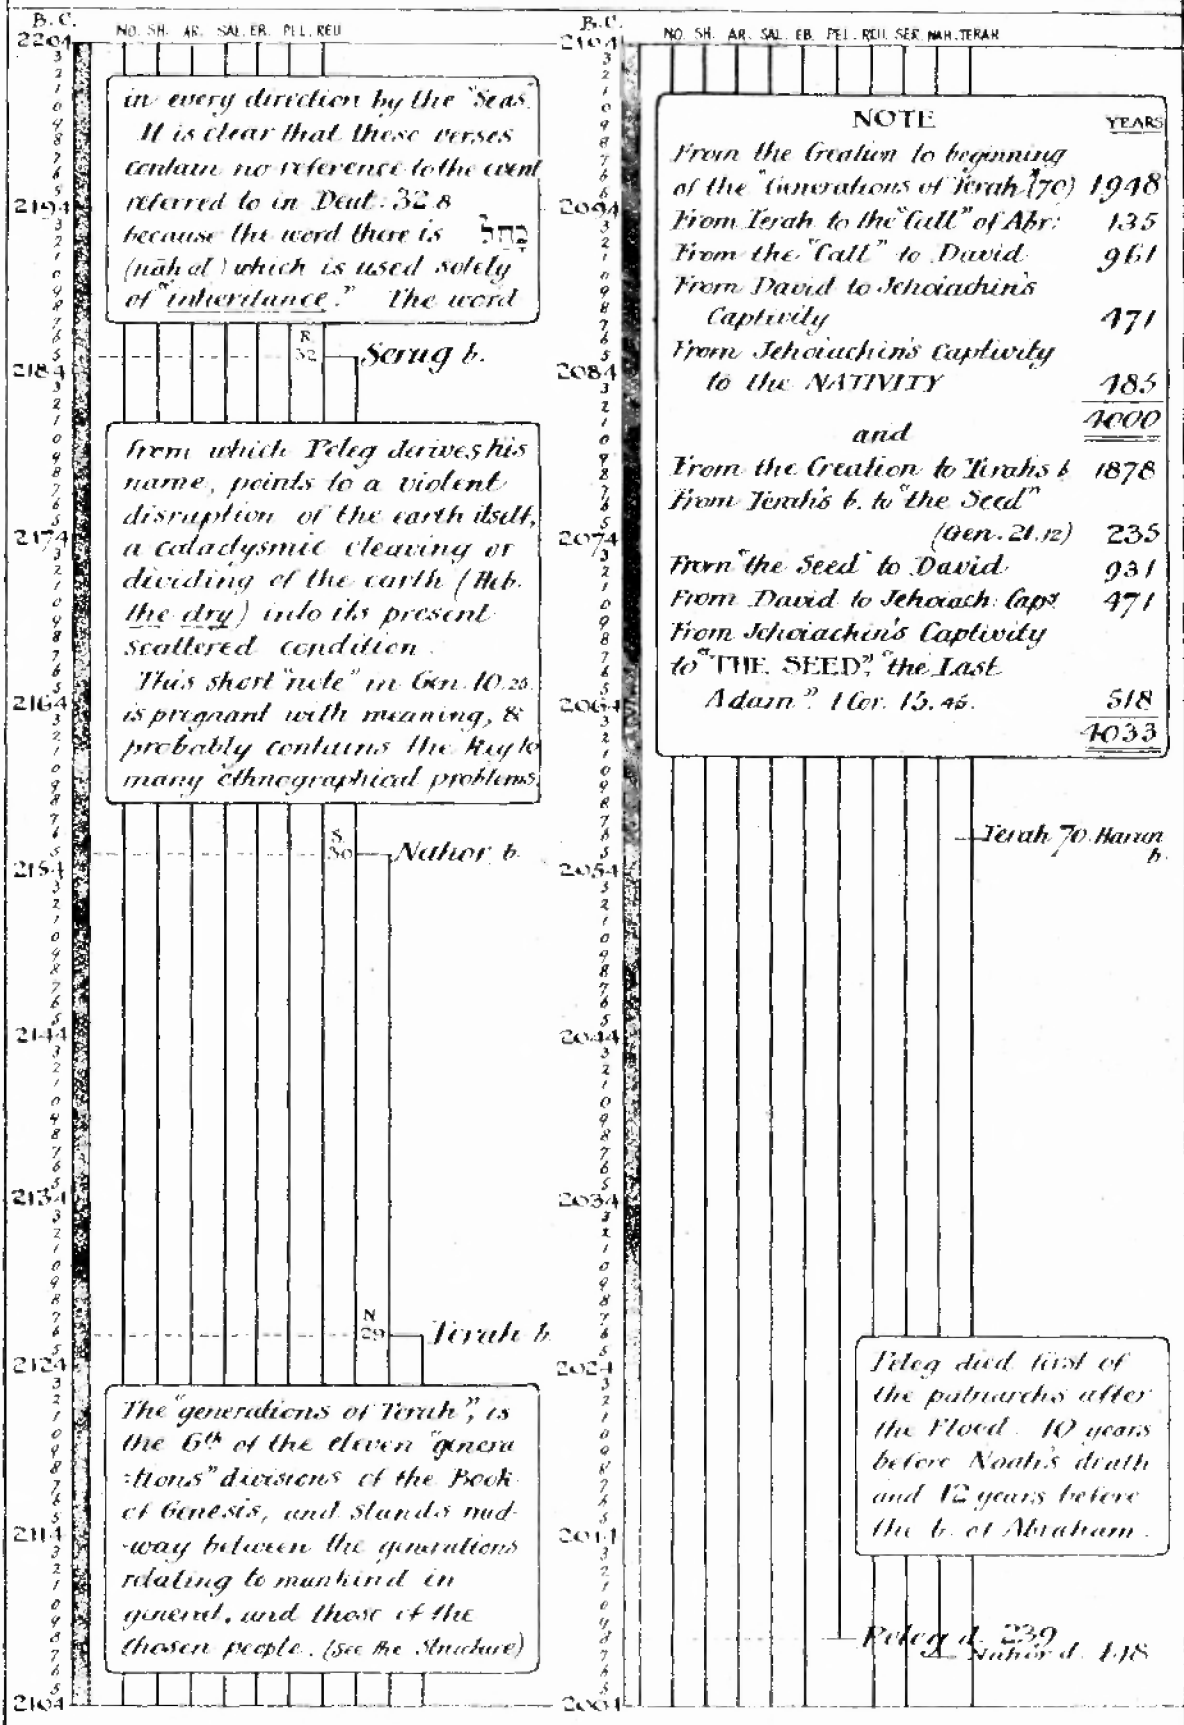 B.C.
2204
NO. SH. AR. SAL. EB. PEL. REU
in every direction by the "Seas."
It is clear that these verses
contain no reference to the event
referred to in Deut. 32.8
because the word there is נָחַל
(nāhal) which is used solely
of "inheritance." The word
2194
R.
32
Serug b.
2184
from which Peleg derives his
name, points to a violent
disruption of the earth itself,
a cataclysmic cleaving or
dividing of the earth (Heb.
the dry) into its present
scattered condition.
This short "note" in Gen. 10.25.
is pregnant with meaning, &
probably contains the key to
many ethnographical problems.
2174
2164
S.
30
Nahor b.
2154
2144
2134
N
29
Terah b.
2124
The "generations of Terah", is
the 6th of the eleven "genera
-tions" divisions of the Book
of Genesis, and stands mid-
-way between the generations
relating to mankind in
general, and those of the
chosen people. (See the Structure)
2114
2104
B.C.
2104
NO. SH. AR. SAL. EB. PEL. REU. SER. NAH. TERAH
NOTE YEARS
From the Creation to beginning
of the "Generations of Terah" (70) 1948
From Terah to the "Call" of Abr: 135
From the "Call" to David 961
From David to Jehoiachin's
Captivity 471
From Jehoiachin's Captivity
to the NATIVITY 485
4000
and
From the Creation to Terah's b 1878
From Terah's b. to "the Seed"
(Gen. 21.12) 235
From "the Seed" to David 931
From David to Jehoiach: Capt. 471
From Jehoiachin's Captivity
to "THE SEED", "the Last
Adam". 1 Cor. 15.45. 518
4033
2094
2084
2074
2064
Terah 70. Haran
b.
2054
2044
2034
2024
Peleg died first of
the patriarchs after
the Flood. 10 years
before Noah's death
and 12 years before
the b. of Abraham.
2014
Peleg d. 239
Nahor d. 148
2004